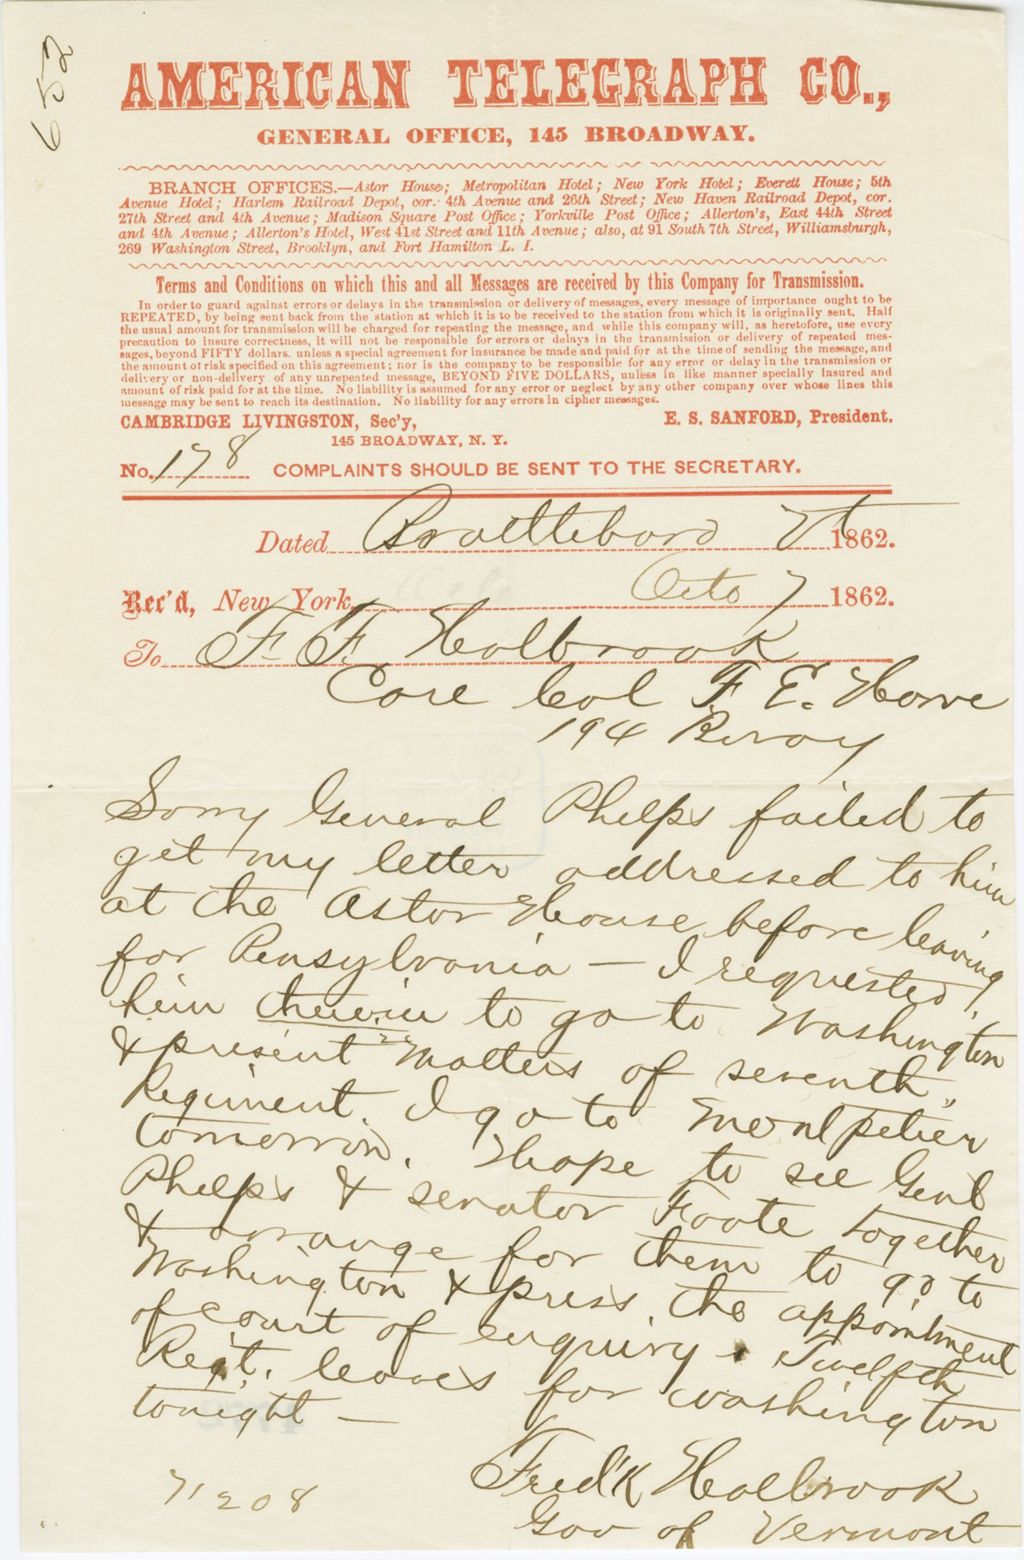 652
AMERICAN TELEGRAPH CO.,
GENERAL OFFICE, 145 BROADWAY.
BRANCH OFFICES.—Astor House; Metropolitan Hotel; New York Hotel; Everett House; 5th
Avenue Hotel; Harlem Railroad Depot, cor. 4th Avenue and 26th Street; New Haven Railroad Depot, cor.
27th Street and 4th Avenue; Madison Square Post Office; Yorkville Post Office; Allerton's, East 44th Street
and 4th Avenue; Allerton's Hotel, West 41st Street and 11th Avenue; also, at 91 South 7th Street, Williamsburgh,
269 Washington Street, Brooklyn, and Fort Hamilton L. I.
Terms and Conditions on which this and all Messages are received by this Company for Transmission.
In order to guard against errors or delays in the transmission or delivery of messages, every message of importance ought to be
REPEATED, by being sent back from the station at which it is to be received to the station from which it is originally sent. Half
the usual amount for transmission will be charged for repeating the message, and while this company will, as heretofore, use every
precaution to insure correctness, it will not be responsible for errors or delays in the transmission or delivery of repeated mes-
sages, beyond FIFTY dollars, unless a special agreement for insurance be made and paid for at the time of sending the message, and
the amount of risk specified on this agreement; nor is the company to be responsible for any error or delay in the transmission or
delivery or non-delivery of any unrepeated message, BEYOND FIVE DOLLARS, unless in like manner specially insured and
amount of risk paid for at the time. No liability is assumed for any error or neglect by any other company over whose lines this
message may be sent to reach its destination. No liability for any errors in cipher messages.
CAMBRIDGE LIVINGSTON, Sec'y, E. S. SANFORD, President.
145 BROADWAY, N. Y.
No. 178 COMPLAINTS SHOULD BE SENT TO THE SECRETARY.
Dated Brattleboro Vt 1862.
Rec'd, New York, Octo 7 1862.
To F. F. Holbrook
Care Col F. E. Howe
194 Bway
Sorry General Phelps failed to
get my letter addressed to him
at the Astor House before leaving
for Pensylvania — I requested
him therein to go to Washington
& present matters of seventh
Regiment. I go to Montpelier
tomorrow. Hope to see Genl
Phelps & senator Foote together
& arrange for them to go to
Washington & press the appointment
of court of enquiry. Twelfth
Regt. leaves for washington
tonight —
Fred'k Holbrook
Gov of Vermont
71208